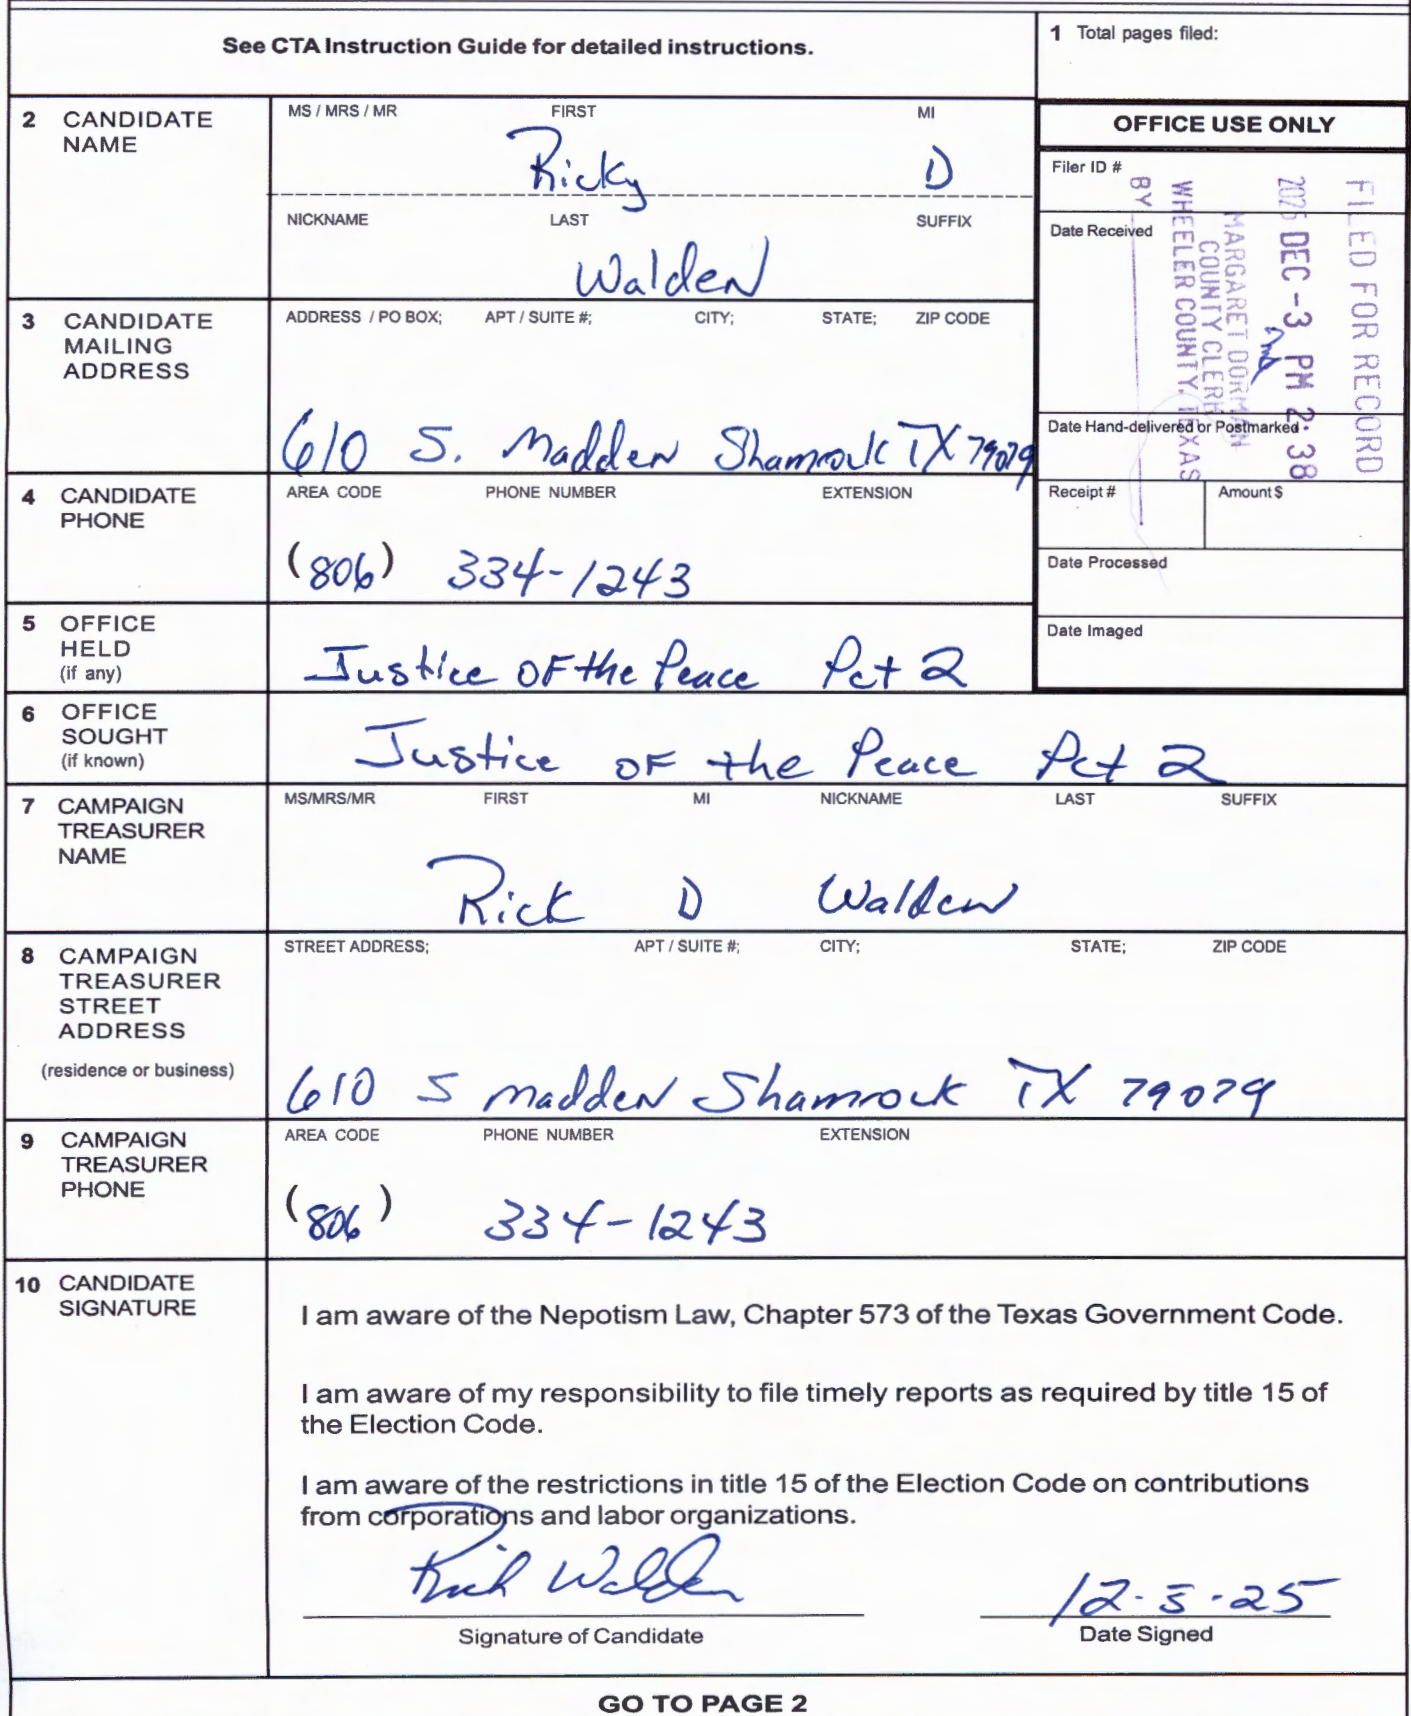 See CTA Instruction Guide for detailed instructions.
1 Total pages filed:
2 CANDIDATE NAME
MS / MRS / MR FIRST MI
Ricky D
NICKNAME LAST SUFFIX
Walden
OFFICE USE ONLY
Filer ID #
Date Received
Date Hand-delivered or Postmarked
Receipt # Amount $
Date Processed
Date Imaged
FILED FOR RECORD
2025 DEC -3 PM 2:38
MARGARET DORMAN
COUNTY CLERK
WHEELER COUNTY, TEXAS
BY
3 CANDIDATE MAILING ADDRESS
ADDRESS / PO BOX; APT / SUITE #; CITY; STATE; ZIP CODE
610 S. Madden Shamrock TX 79079
4 CANDIDATE PHONE
AREA CODE PHONE NUMBER EXTENSION
(806) 334-1243
5 OFFICE HELD (if any)
Justice OF the Peace Pct 2
6 OFFICE SOUGHT (if known)
Justice OF the Peace Pct 2
7 CAMPAIGN TREASURER NAME
MS/MRS/MR FIRST MI NICKNAME LAST SUFFIX
Rick D Walden
8 CAMPAIGN TREASURER STREET ADDRESS
(residence or business)
STREET ADDRESS; APT / SUITE #; CITY; STATE; ZIP CODE
610 S Madden Shamrock TX 79079
9 CAMPAIGN TREASURER PHONE
AREA CODE PHONE NUMBER EXTENSION
(806) 334-1243
10 CANDIDATE SIGNATURE
I am aware of the Nepotism Law, Chapter 573 of the Texas Government Code.
I am aware of my responsibility to file timely reports as required by title 15 of
the Election Code.
I am aware of the restrictions in title 15 of the Election Code on contributions
from corporations and labor organizations.
Rick Walden
Signature of Candidate
Date Signed
GO TO PAGE 2